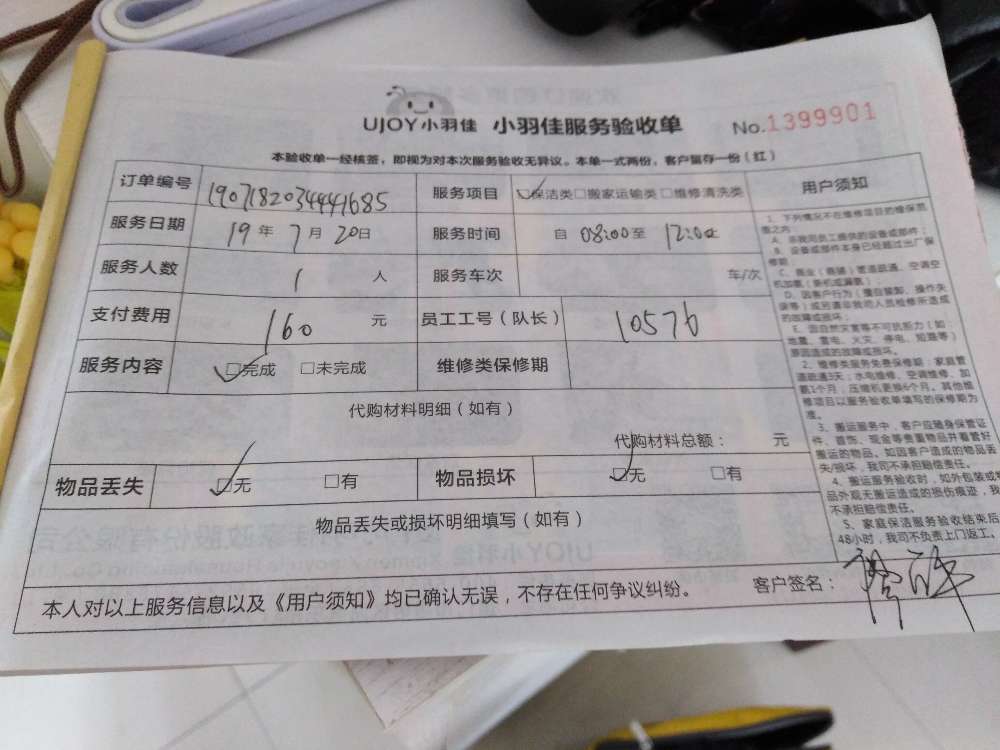 UJOY小羽佳 小羽佳服务验收单 No.1399901
本验收单一经核签，即视为对本次服务验收无异议。本单一式两份，客户留存一份（红）
订单编号 190718203444 1685 服务项目 ☑保洁类□搬家运输类□维修清洗类
服务日期 19年7月20日 服务时间 自08:00至12:00止
服务人数 1人 服务车次 车/次
支付费用 160元 员工工号（队长） 10576
服务内容 ☑完成 □未完成 维修类保修期
代购材料明细（如有）
代购材料总额： 元
物品丢失 ☑无 □有 物品损坏 ☑无 □有
物品丢失或损坏明细填写（如有）
本人对以上服务信息以及《用户须知》均已确认无误，不存在任何争议纠纷。 客户签名：
用户须知
1、下列情况不在维修项目的维保范
围之内：
A、非我司员工提供的设备或部件；
B、设备或部件本身已经超过出厂保
修期；
C、商业（商铺）管道疏通、空调空
机加氟（新机或漏氟）；
D、因客户行为（擅自装卸、操作失
误等）或另请非我司人员检修所造成
的故障或损坏；
E、因自然灾害等不可抗断力（如：
地震、雷电、火灾、停电、短路等）
原因造成的故障或损坏。
2、维修类服务免费保修期：家庭管
道疏通3天；水电维修、空调维修、加
氟1个月；压缩机更换6个月。其他维
修项目以服务验收单填写的保修期为
准。
3、搬运服务中，客户应随身保管证
件、首饰、现金等贵重物品并看管好
搬运的物品。如因客户造成的物品丢
失/损坏，我司不承担赔偿责任。
4、搬运服务验收时，如外包装或物
品外观无搬运造成的损伤痕迹，我
不承担赔偿责任。
5、家庭保洁服务验收结束后
48小时，我司不负责上门返工。